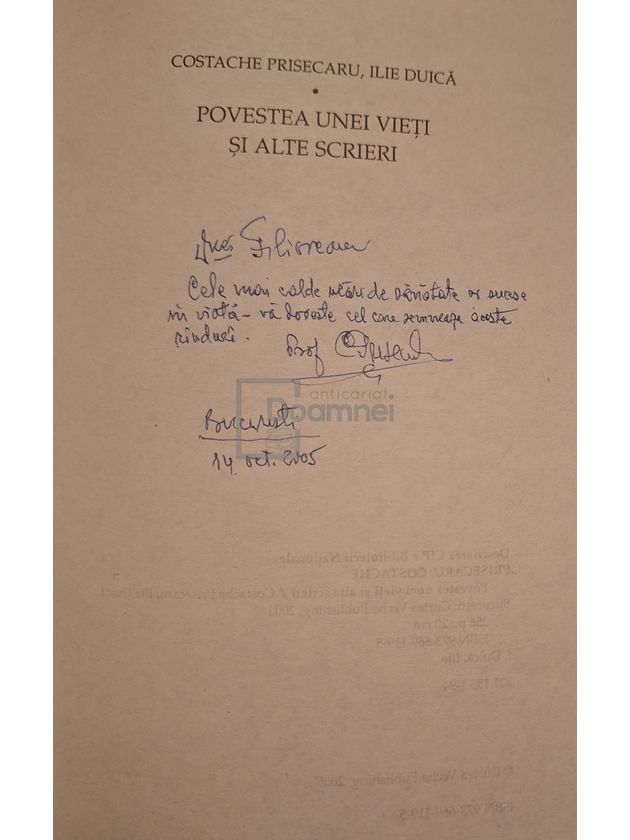 COSTACHE PRISECARU, ILIE DUICĂ
•
POVESTEA UNEI VIEȚI
ȘI ALTE SCRIERI
Cele mai calde urări de sănătate și succese
în viață – vă dorește cel care semnează aceste
rînduri.
Prof CPrisecaru
anticariat
Doamnei
București
14. oct. 2005
Descrierea CIP a Bibliotecii Naționale
PRISECARU, COSTACHE
Povestea unei vieți și alte scrieri / Costache Prisecaru, Ilie Duică
București: Curtea Veche Publishing, 2005
256 p.; 20 cm
ISBN 973-669-119-3
I. Duică, Ilie
821.135.1-94
© Curtea Veche Publishing, 2005
ISBN 973-669-119-3